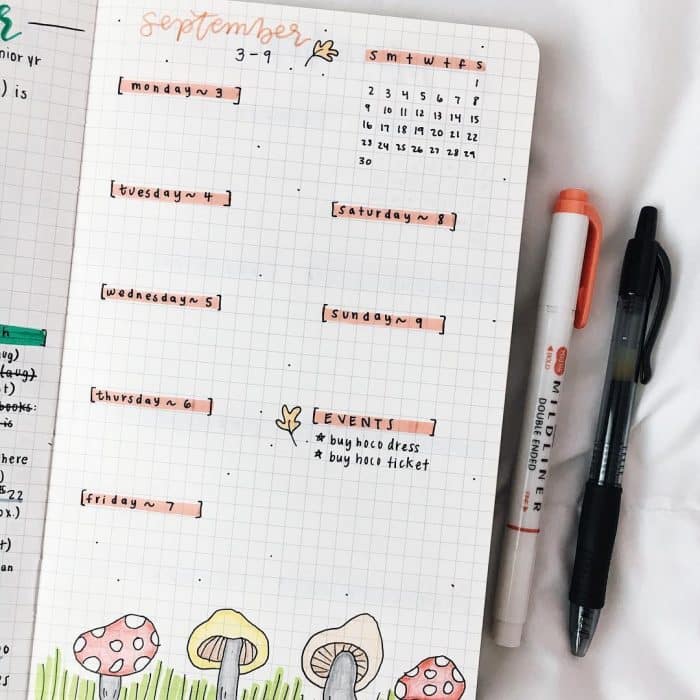 nior yr
) is
h
ug)
(aug)
t)
books:
is
here
)
22
ox.)
)
t)
an
september
3-9
s m t w t f s
1
2 3 4 5 6 7 8
9 10 11 12 13 14 15
16 17 18 19 20 21 22
23 24 25 26 27 28 29
30
[monday~ 3]
[tuesday~ 4]
[wednesday~ 5]
[thursday~ 6]
[friday ~ 7]
[saturday~ 8]
[sunday~ 9]
[EVENTS]
★ buy hoco dress
★ buy hoco ticket
MILDLINER
DOUBLE ENDED